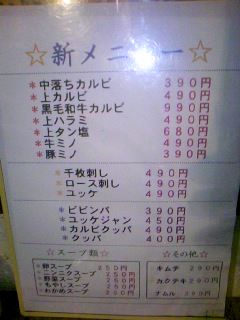 ☆新メニュー☆
*中落ちカルビ 390円
*上カルビ 490円
*黒毛和牛カルビ 990円
*上ハラミ 490円
*上タン塩 680円
*牛ミノ 490円
*豚ミノ 390円
*千枚刺し 490円
*ロース刺し 490円
*ユッケ 490円
*ビビンバ 390円
*ユッケジャン 450円
*カルビクッパ 490円
*クッパ 400円
☆スープ類☆
*卵スープ 250円
*ニンニクスープ 250円
*野菜スープ 250円
*もやしスープ 250円
*わかめスープ 250円
☆その他☆
キムチ 290円
カクテキ 290円
ナムル 290円